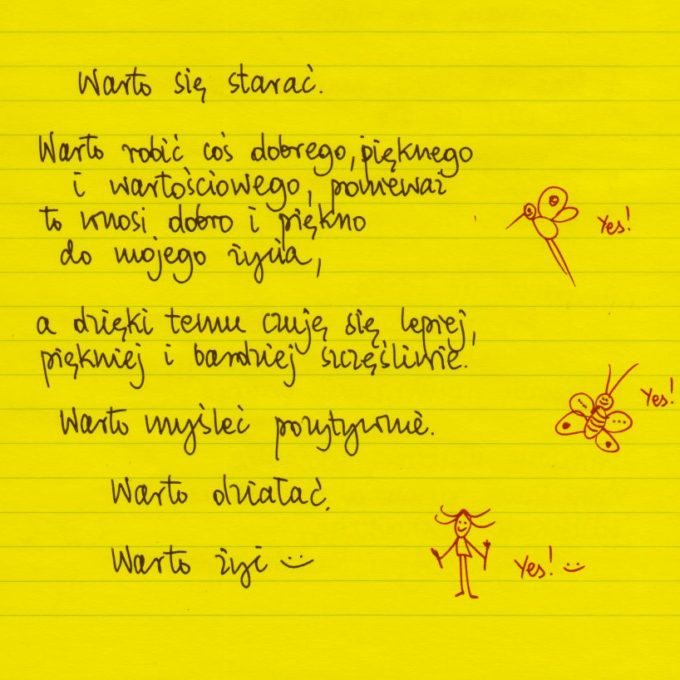 Warto się starać.
Warto robić coś dobrego, pięknego
i wartościowego, ponieważ
to wnosi dobro i piękno
do mojego życia,
Yes!
a dzięki temu czuję się lepiej,
piękniej i bardziej szczęśliwie.
Yes!
Warto myśleć pozytywnie.
Warto działać.
Warto żyć
Yes!